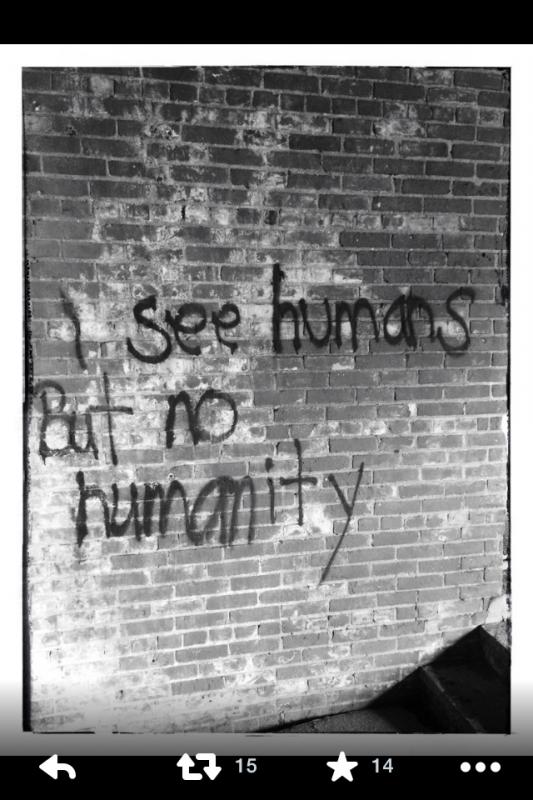 i see humans
But no
humanity
15 14